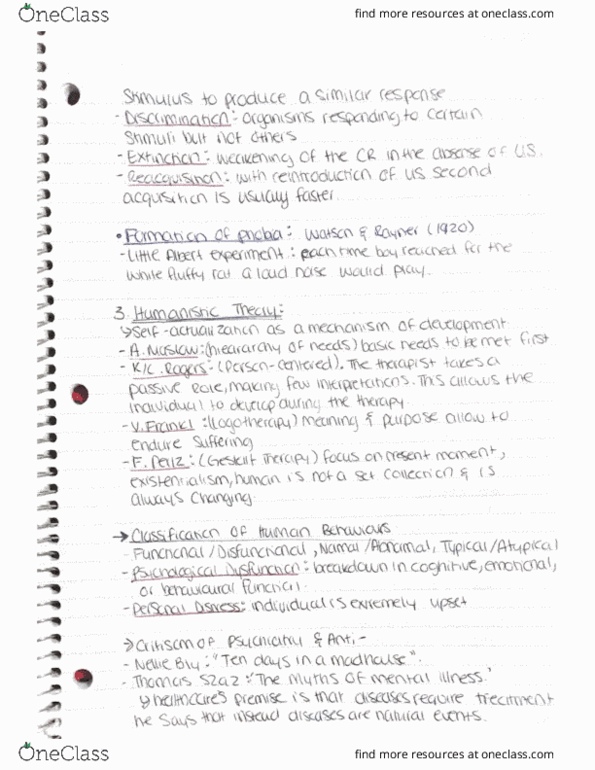 OneClass
find more resources at oneclass.com
Stimulus to produce a similar response
- Discrimination: organisms responding to certain
Stimuli but not others
- Extinction: weakening of the CR in the absense of U.S.
- Reacquisition: with reintroduction of US second
acquisition is usually faster.
• Formation of phobia: Watson & Rayner (1920)
- Little Albert experiment: each time boy reached for the
white fluffy rat a loud noise would play.
3. Humanistic Theory:
↳ Self-actualization as a mechanism of development
- A. Maslow: (hieararchy of needs) basic needs to be met first
- Rogers: (Person-centered). The therapist takes a
passive role, making few interpretations. This allows the
individual to develop during the therapy.
- V. Frankl: (Logotherapy) meaning & purpose allow to
endure suffering
- F. Perlz: (Gestalt Therapy) focus on present moment,
existentialism, human is not a set collection & is
always changing.
→ Classification of Human Behaviours
- Functional/Disfunctional, Normal/Abnormal, Typical/Atypical
- Psychological Dysfunction: breakdown in cognitive, emotional,
or behavioural function.
- Personal Distress: individual is extremely upset
→ Critism of Psychiatry & Anti-
- Nellie Bly: "Ten days in a madhouse".
- Thomas Szaz: 'The Myths of mental illness.'
↳ healthcare's premise is that diseases require treatment
he says that instead diseases are natural events.
OneClass
find more resources at oneclass.com